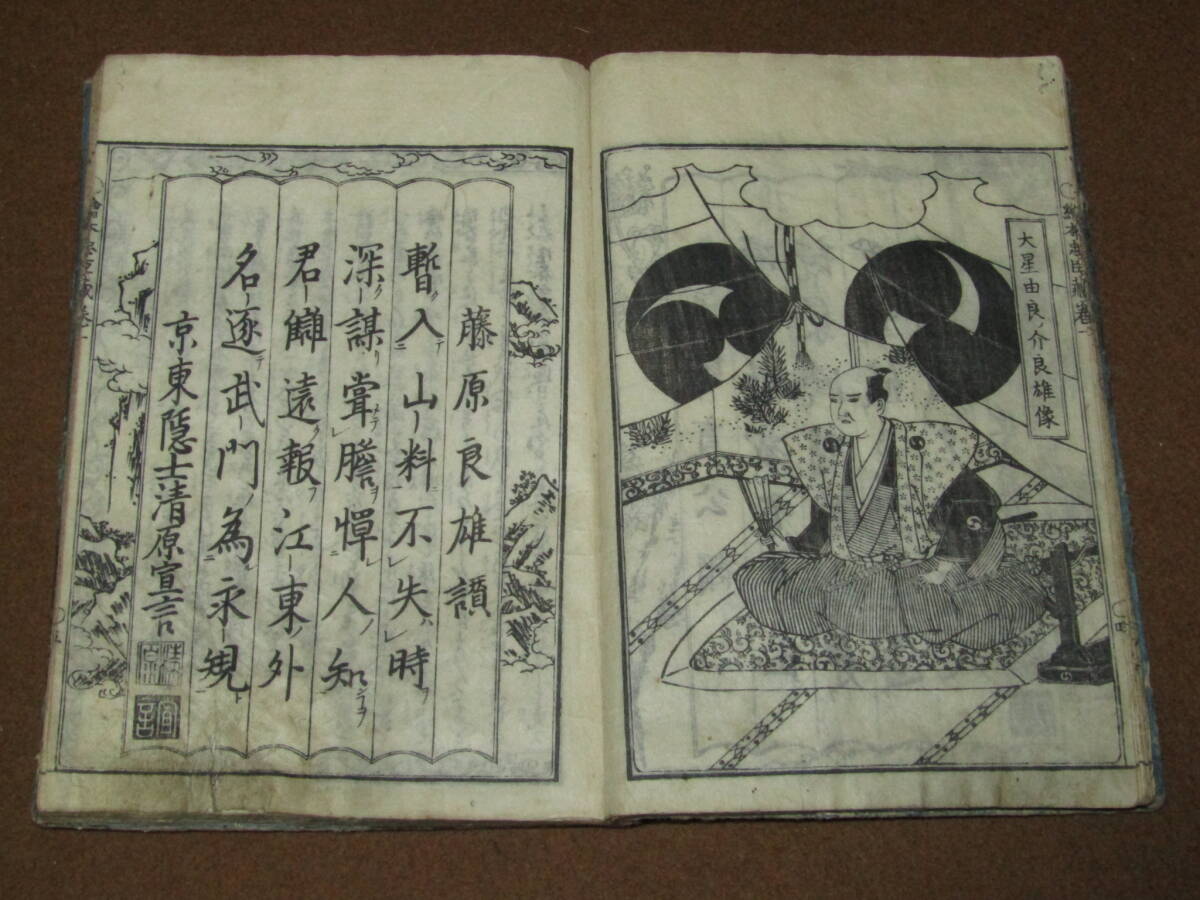 繪本忠臣藏 卷一
大星由良ノ介良雄像
四
藤原良雄讃
暫入山料不失時
深謀甞膽憚人知
君讎遠報江東外
名逐武門為永規
京東隱士清原宣言